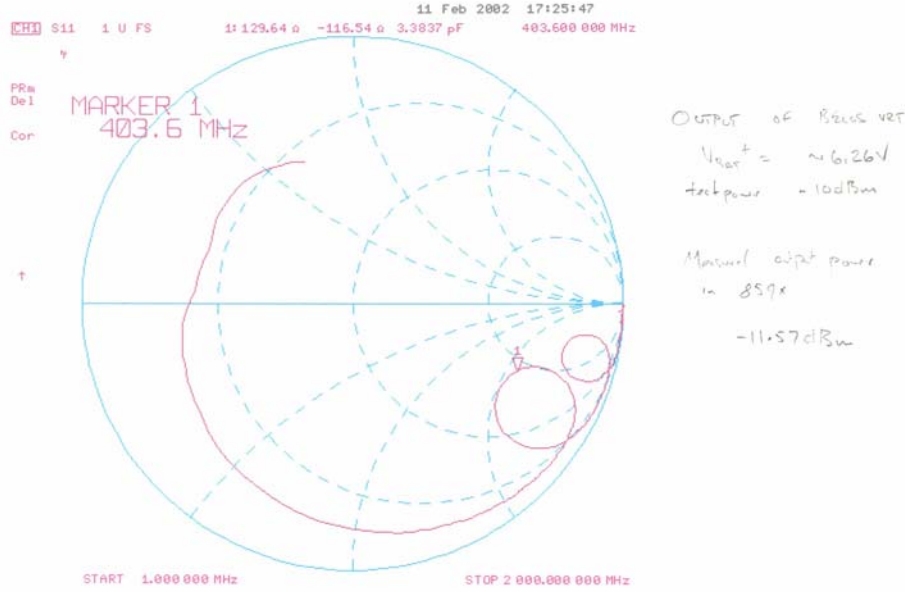 11 Feb 2002 17:25:47
CH1 S11 1 U FS 1: 129.64 Ω -116.54 Ω 3.3837 pF 403.600 000 MHz
PRm
Del
Cor
MARKER 1
403.6 MHz
1
OUTPUT OF
~6.26V
-10dBm
Measured output power
in 8597x
-11.57dBm
START 1.000 000 MHz STOP 2 000.000 000 MHz